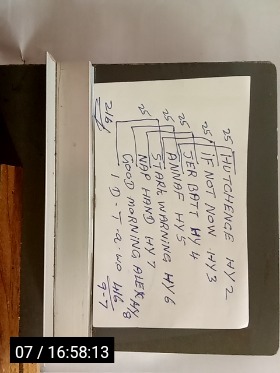 25 HUTCHENCE HY 2
25 IF NOT NOW HY 3
25 JER BATT HY 4
25 ANNAF HY 5
START WARNING HY 6
25 NAP HAND HY 7
GOOD MORNING ALEX HY 8
216
07 / 16:58:13